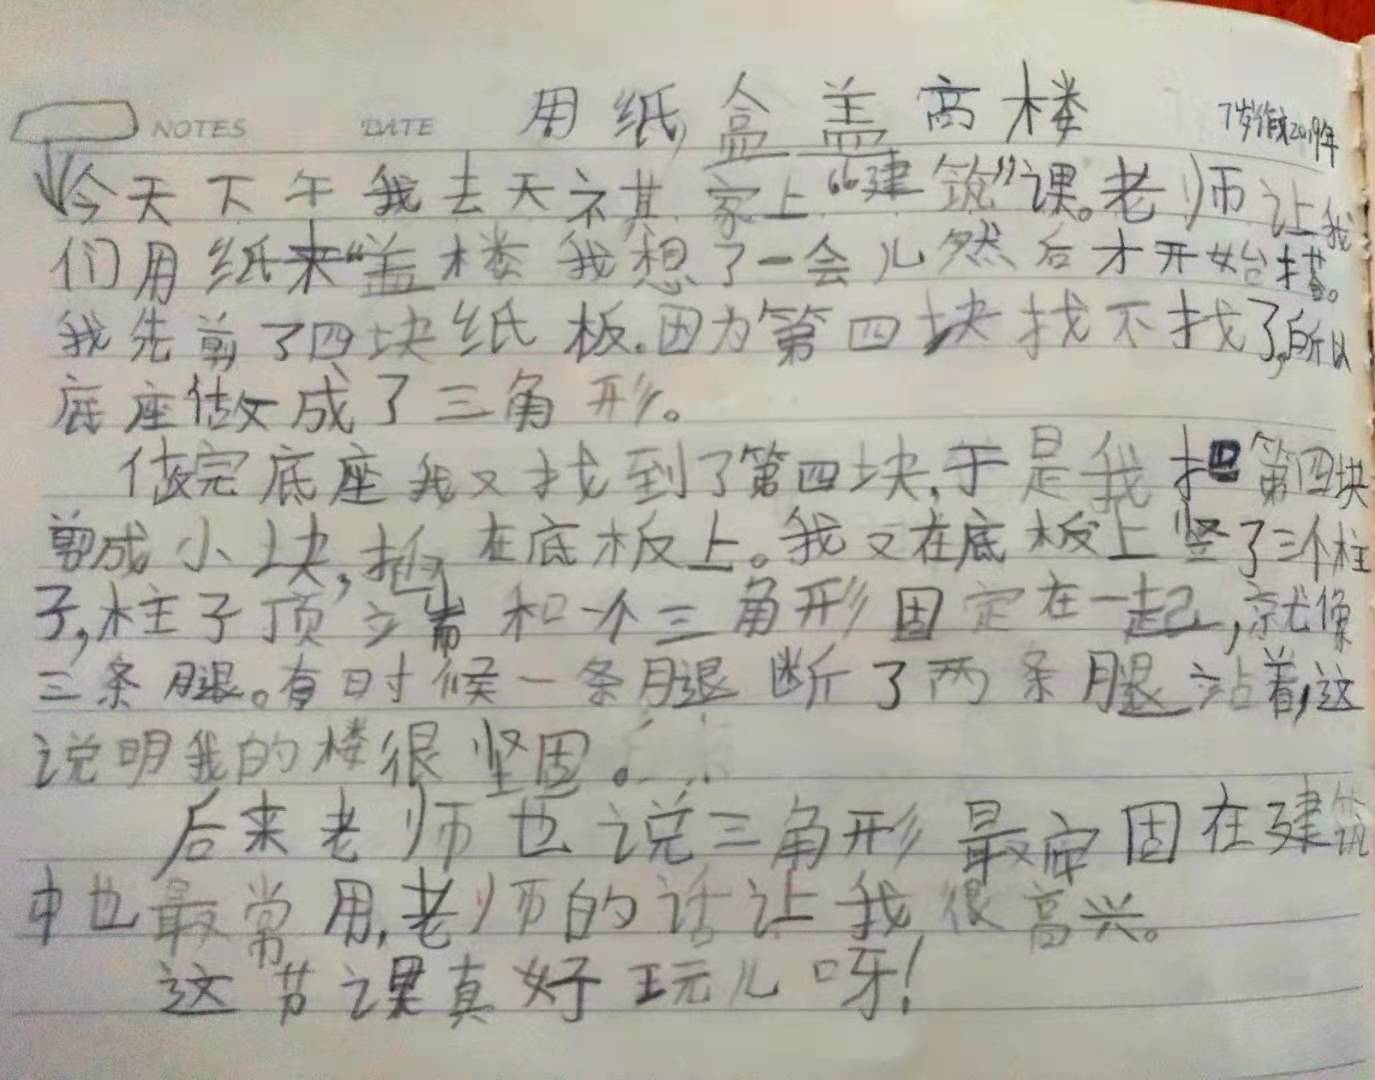 用纸盒盖高楼
7岁作于2019年
NOTES
DATE
今天下午我去天祺家上“建筑”课。老师让我
们用纸来“盖楼 我想了一会儿然后才开始搭。
我先剪了四块纸板.因为第四块找不找了,所以
底座做成了三角形。
做完底座我又找到了第四块,于是我把第四块
剪成小块,抱在底板上。我又在底板上竖了三个柱
子,柱子顶端和一个三角形固定在一起,就像
三条腿。有时候一条腿断了两条腿站着,这
说明我的楼很坚固。
后来老师也说三角形最牢固在建筑
中也最常用,老师的话让我很高兴。
这节课真好玩儿呀!